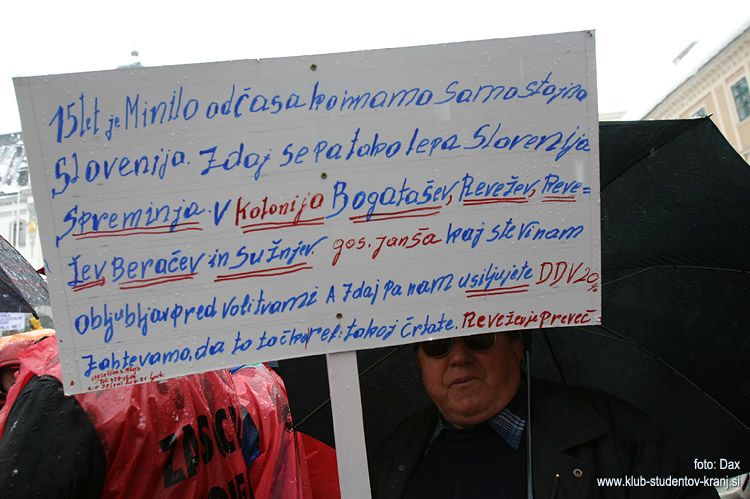 15 let je Minilo od časa ko imamo samostojno
Slovenija. Zdaj se pa tako lepa Slovenija
Spreminja. v Kolonija Bogatašev, Revežev, Reve=
žev Beračev in Sužnjev. gos. janša kaj ste vi nam
obljubljali pred volitvami A zdaj pa nam usiljujete DDV 20%
zahtevamo, da to točko ref. takoj črtate. Reveže je Preveč
foto: Dax
www.klub-studentov-kranj.si